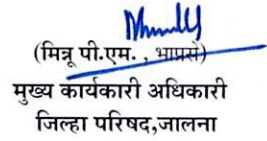 (मिन्नू पी.एम. , भाप्रसे)
मुख्य कार्यकारी अधिकारी
जिल्हा परिषद,जालना